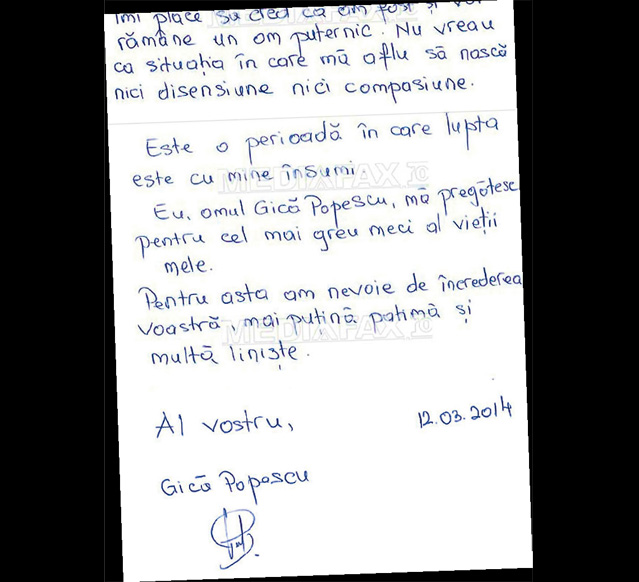 îmi place să cred că am fost și voi
rămâne un om puternic. Nu vreau
ca situația în care mă aflu să nască
nici disensiune nici compasiune.
Este o perioadă în care lupta
este cu mine însumi.
MEDIAFAX
Eu, omul Gică Popescu, mă pregătesc
pentru cel mai greu meci al vieții
mele.
Pentru asta am nevoie de încrederea
voastră, mai puțină patimă și
MEDIAFAX
multă liniște.
Al vostru,
12.03.2014
Gică Popescu